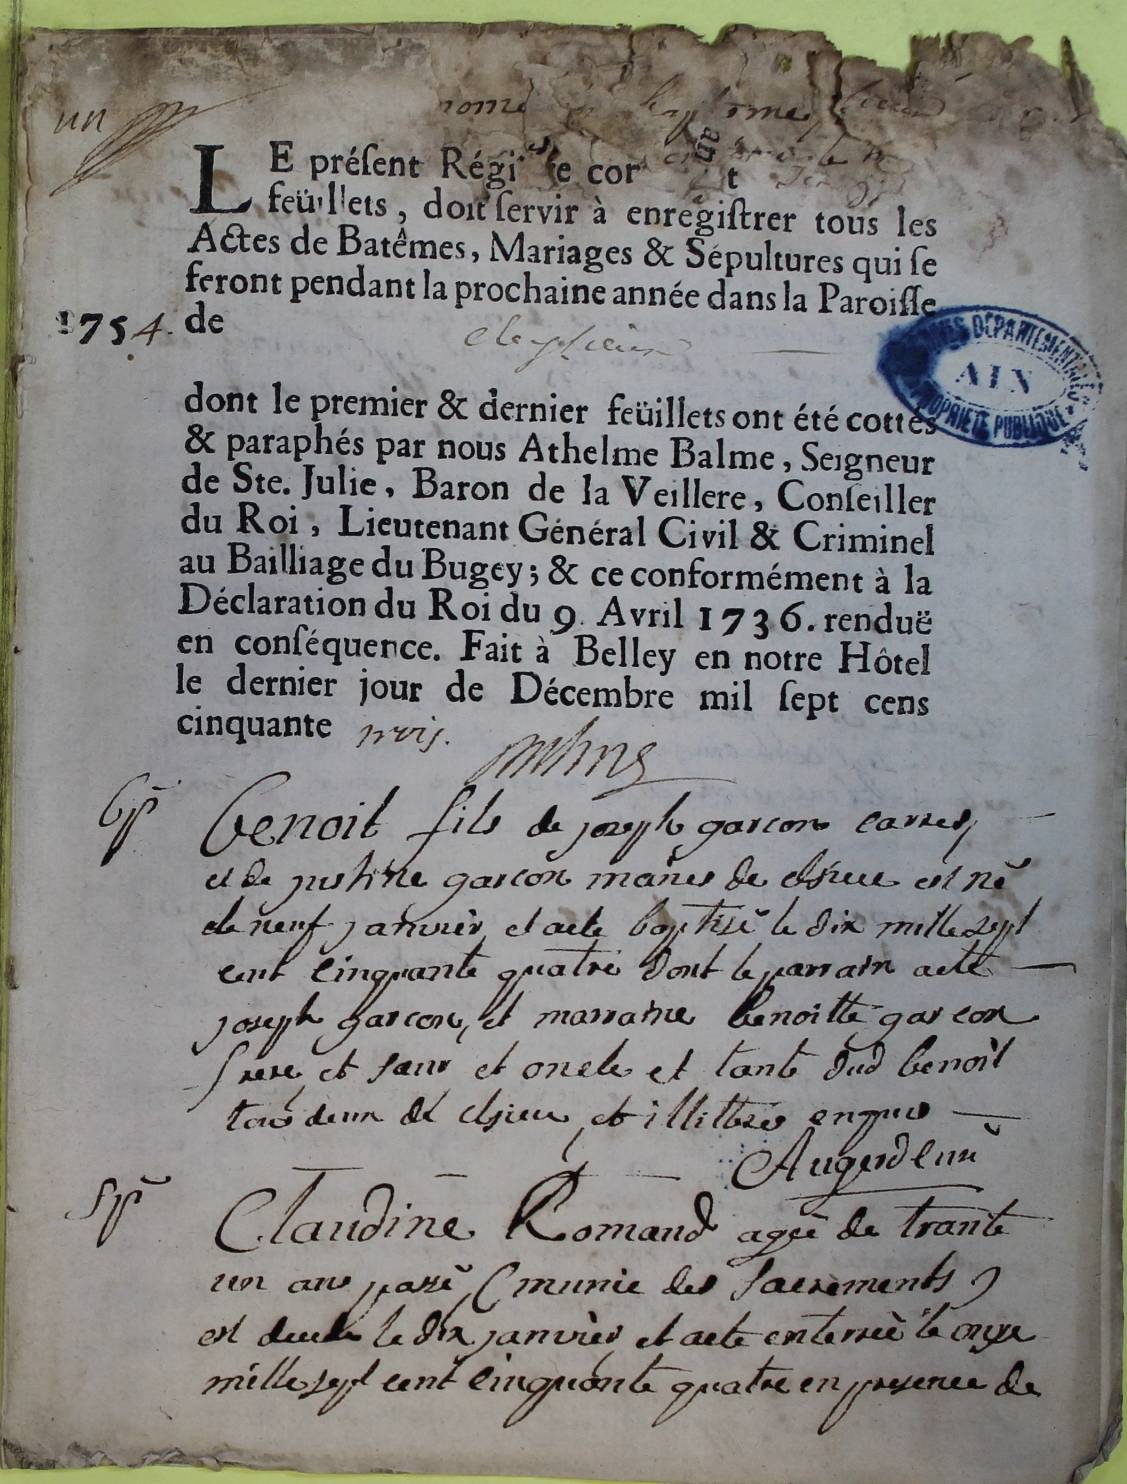 un
LE préſent Régiſ e cor t
feüillets, doit ſervir à enregiſtrer tous les
Actes de Batêmes, Mariages & Sépultures qui ſe
feront pendant la prochaine année dans la Paroiſſe
1754. de
dont le premier & dernier feüillets ont été cottés
& paraphés par nous Athelme Balme, Seigneur
de Ste. Julie, Baron de la Veillere, Conſeiller
du Roi, Lieutenant Général Civil & Criminel
au Bailliage du Bugey; & ce conformément à la
Déclaration du Roi du 9. Avril 1736. renduë
en conſéquence. Fait à Belley en notre Hôtel
le dernier jour de Décembre mil ſept cens
cinquante trois.
ARCHIVES DÉPARTEMENTALES
AIN
PROPRIÉTÉ PUBLIQUE
Bp
Benoit fils de joseph garcon
et de justine garcon mariés de est né
le neuf janvier et a eté baptisé le dix mille sept
cent cinquante quatre dont le parrain a eté
joseph garcon, et marraine benoitte garcon
frere et sœur et oncle et tante dud benoit
tous deux de et illittrés
Sp
Claudine Romand agée de trante
un ans passé, (munie des sacrements)
est decede le dix janvier et a eté enterrée le onze
mille sept cent cinquante quatre en presence de